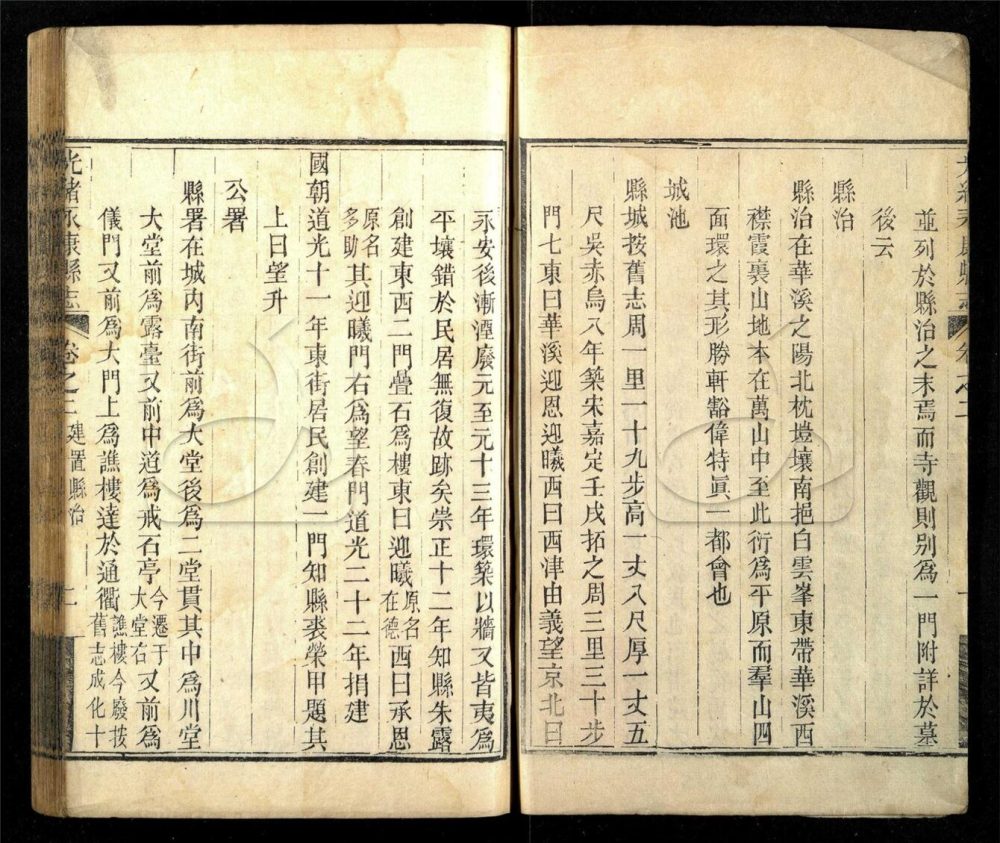 並列於縣治之末焉而寺觀則别爲一門附詳於墓
後云
縣治
縣治在華溪之陽北枕塏壤南挹白雲峯東帶華溪西
襟霞裏山地本在萬山中至此衍爲平原而羣山四
面環之其形勝軒豁偉特眞一都會也
城池
縣城按舊志周一里一十九步高一丈八尺厚一丈五
尺吳赤烏八年築宋嘉定壬戌拓之周三里三十步
門七東曰華溪迎恩迎曦西曰西津由義望京北曰
永安後漸湮廢元至元十三年環築以牆又皆夷爲
平壤錯於民居無復故跡矣崇正十二年知縣朱露
創建東西二門疊石爲樓東曰迎曦原名在德西曰承恩
原名多助其迎曦門右爲望春門道光二十二年捐建
國朝道光十一年東街居民創建一門知縣裘榮甲題其
上曰望升
公署
縣署在城内南街前爲大堂後爲二堂貫其中爲川堂
大堂前爲露臺又前中道爲戒石亭今遷于大堂右又前爲
儀門又前爲大門上爲譙樓達於通衢譙樓今廢按舊志成化十
光緖永康縣志 卷之二 建置縣治 二